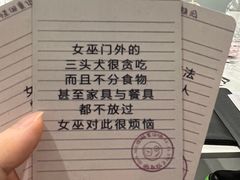 女巫门外的
三头犬很贪吃
而且不分食物
甚至家具与餐具
都不放过
女巫对此很烦恼
法
人